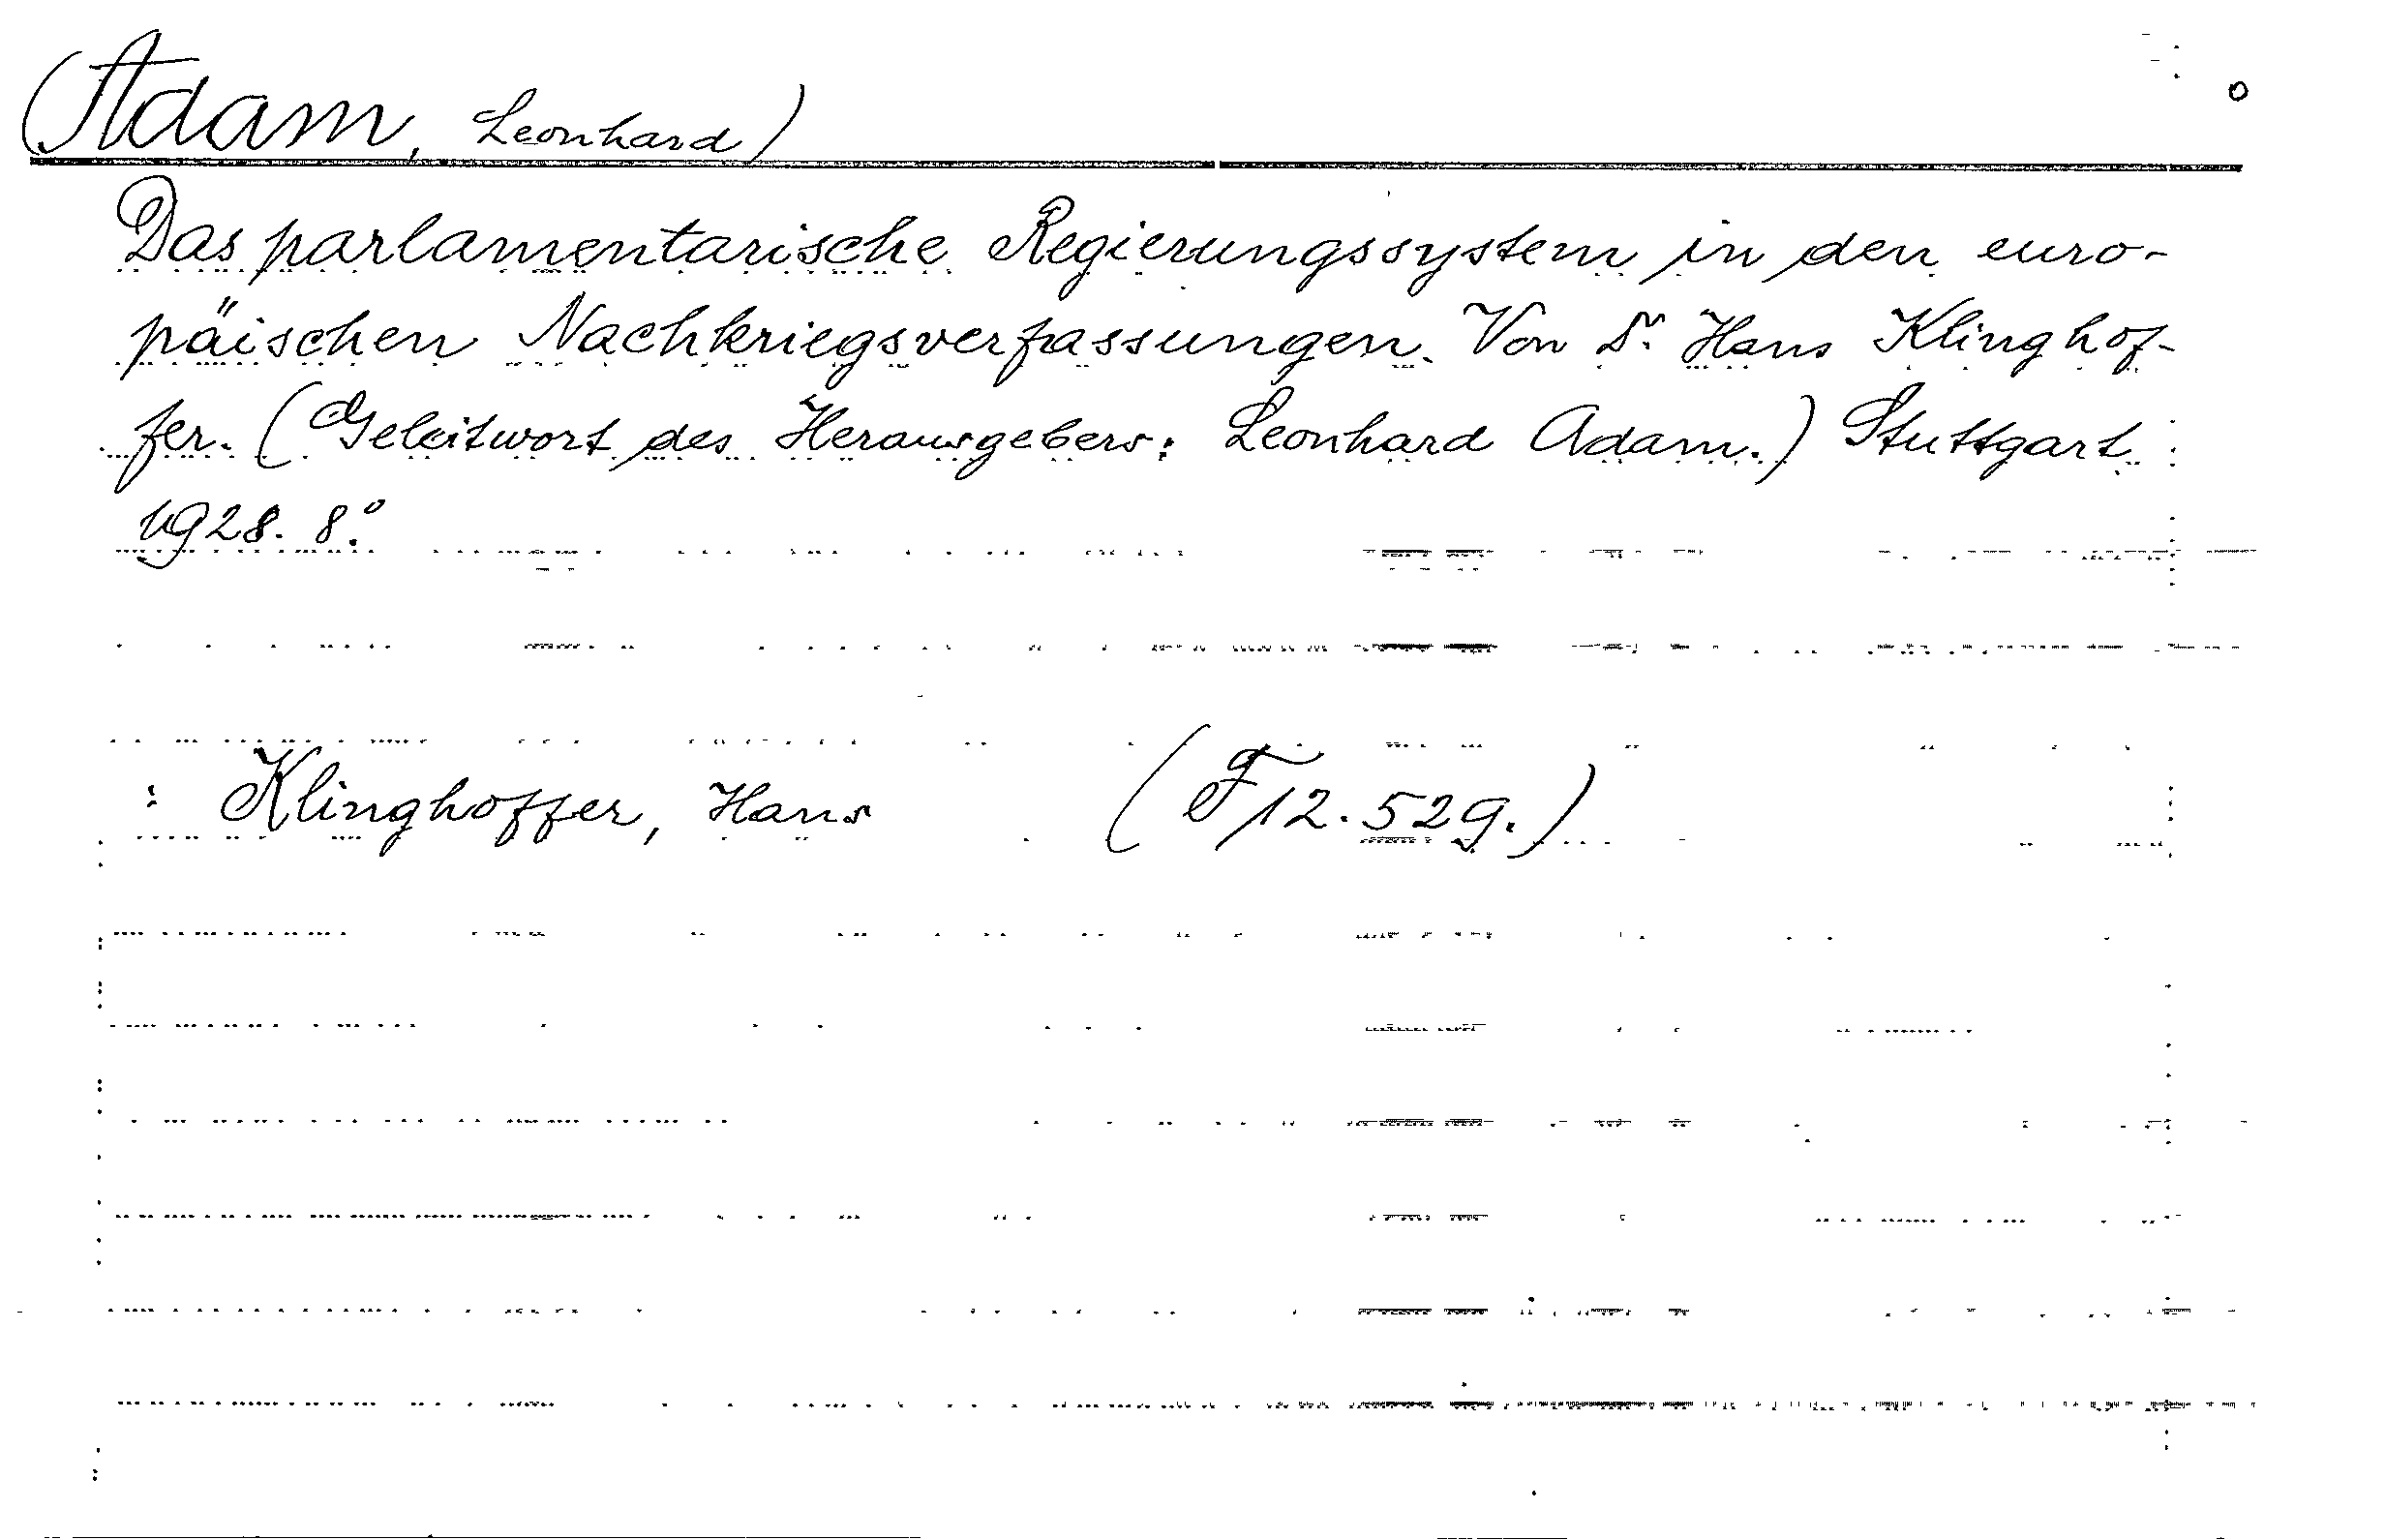 (Adam, Leonhard)
Das parlamentarische Regierungssystem in den euro-
päischen Nachkriegsverfassungen. Von Dr. Hans Klinghof-
fer. (Geleitwort des Herausgebers: Leonhard Adam.) Stuttgart
1928. 8.°
: Klinghoffer, Hans (F 12.529.)